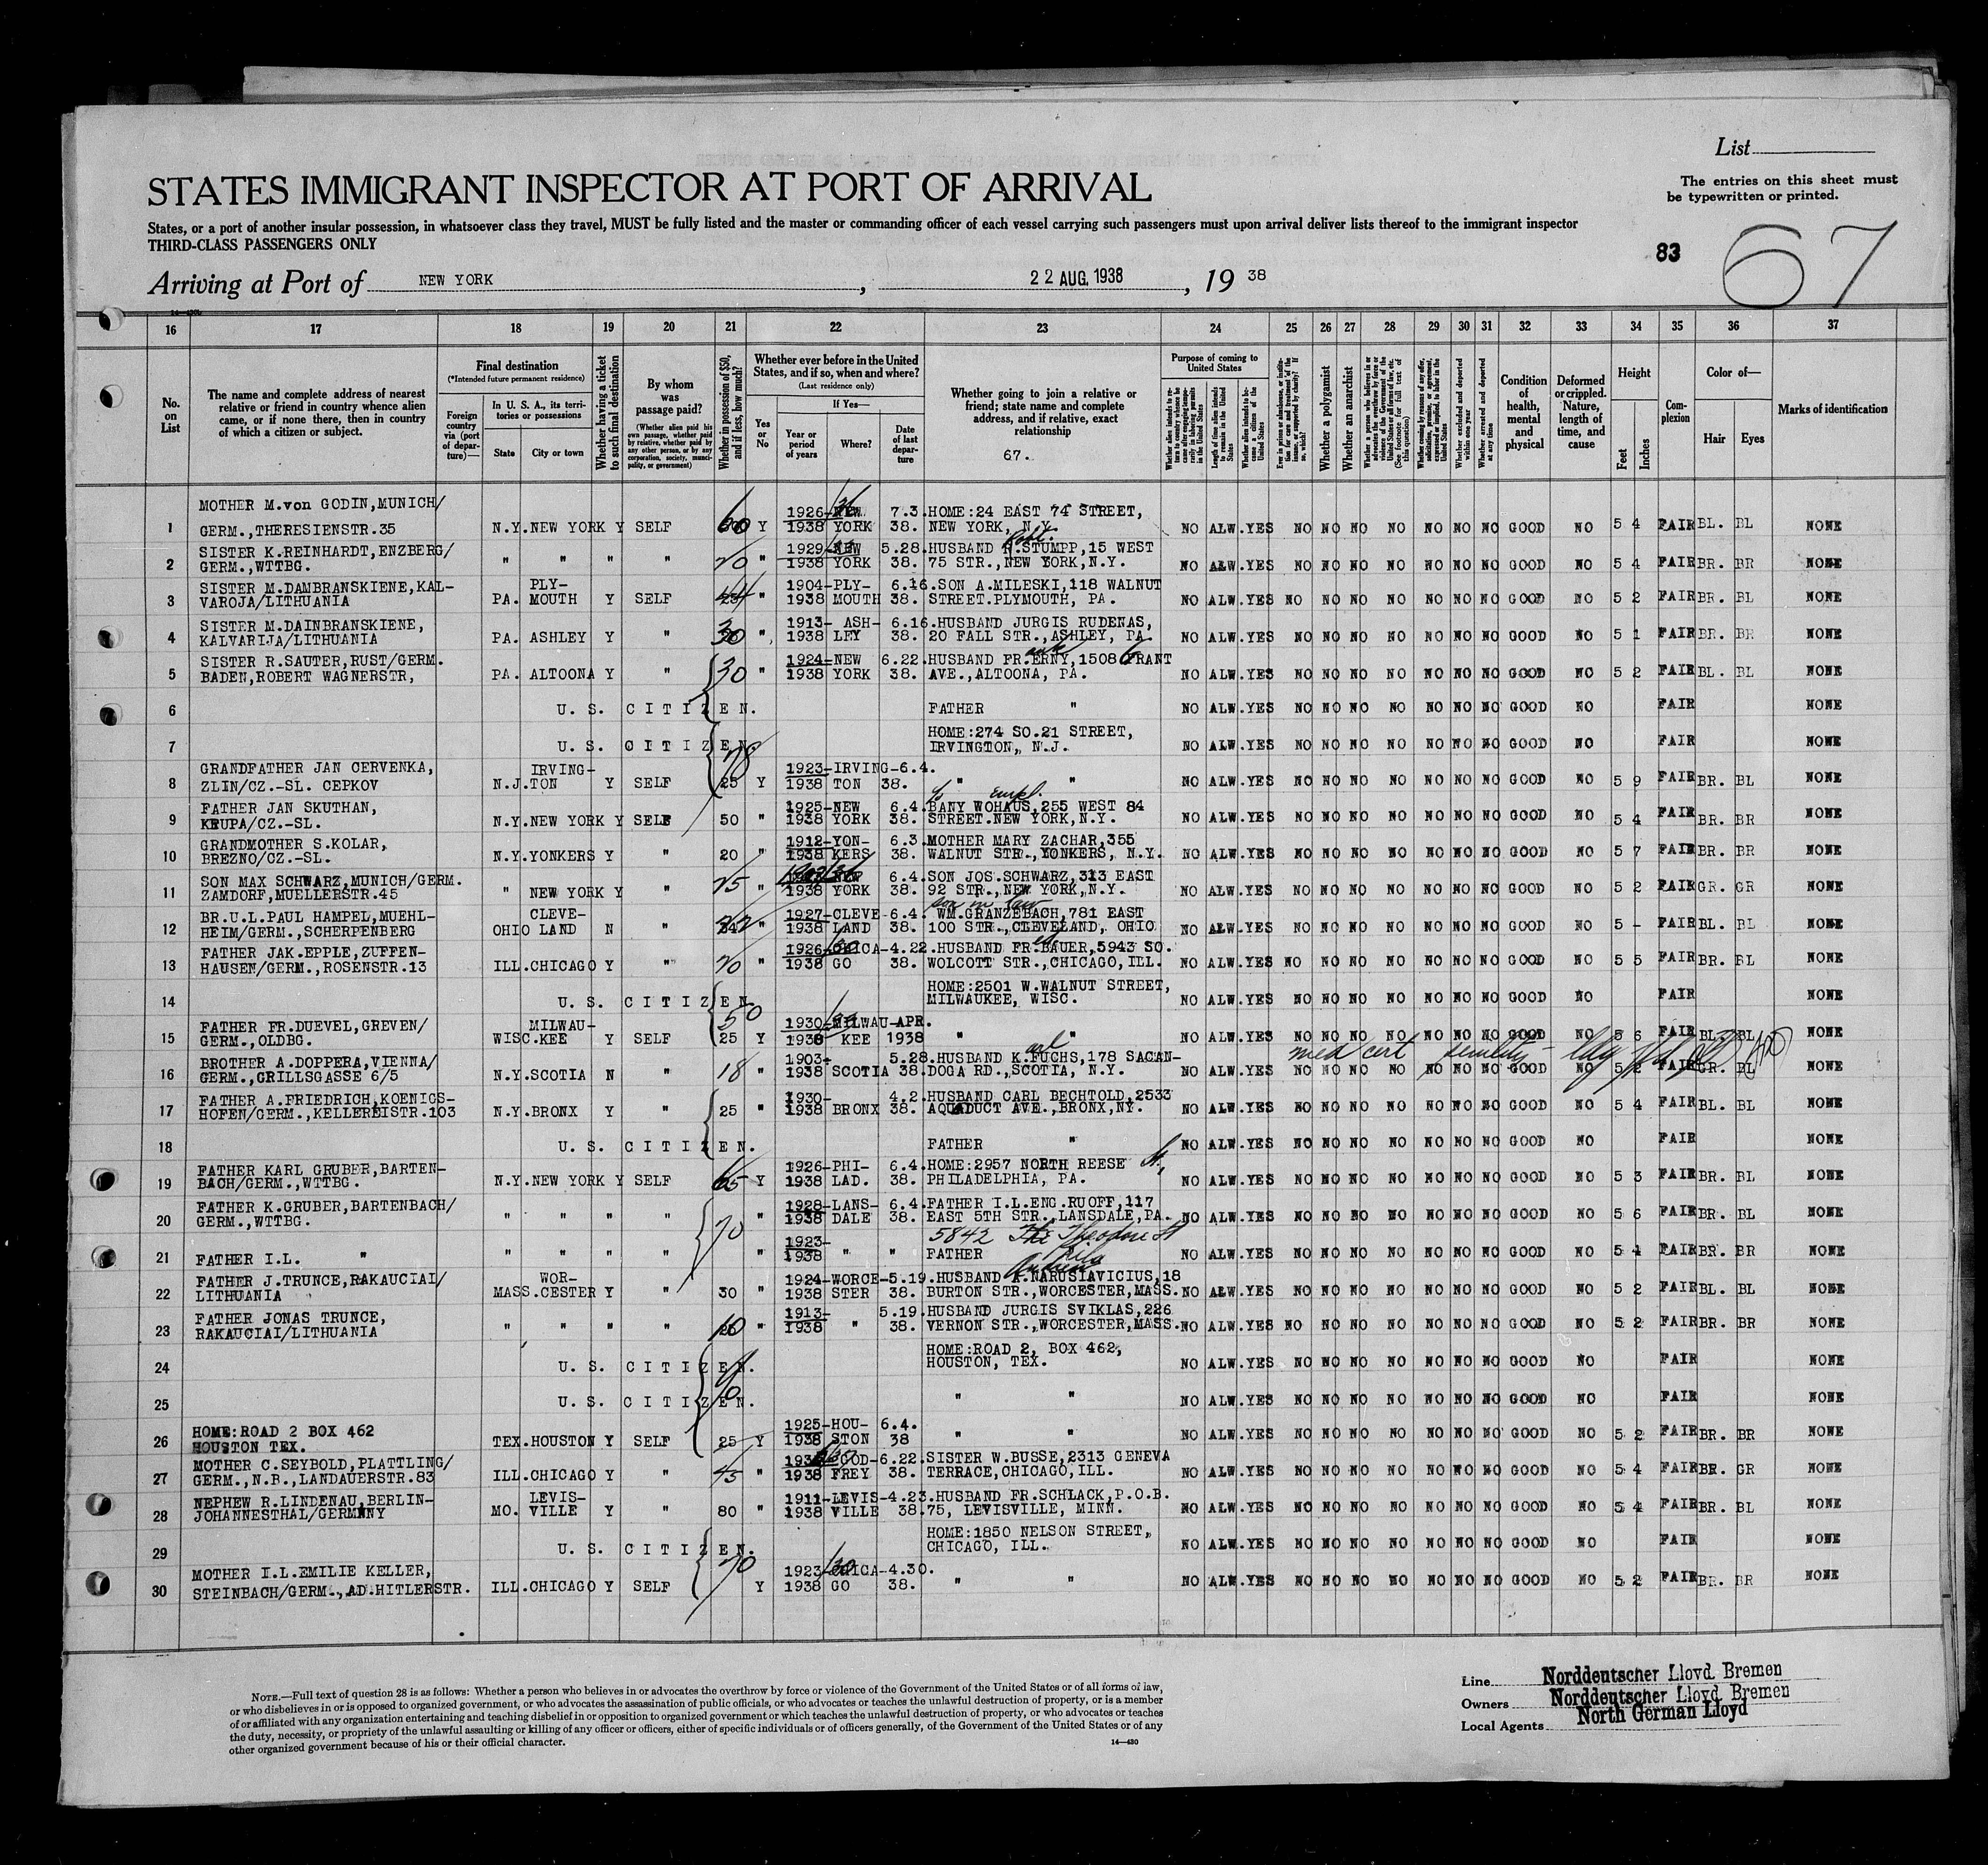 List
STATES IMMIGRANT INSPECTOR AT PORT OF ARRIVAL
The entries on this sheet must
be typewritten or printed.
States, or a port of another insular possession, in whatsoever class they travel, MUST be fully listed and the master or commanding officer of each vessel carrying such passengers must upon arrival deliver lists thereof to the immigrant inspector
THIRD-CLASS PASSENGERS ONLY
83 67
Arriving at Port of NEW YORK , 22 AUG. 1938 , 19 38
16 17 18 19 20 21 22 23 24 25 26 27 28 29 30 31 32 33 34 35 36 37
No. on List
The name and complete address of nearest relative or friend in country whence alien came, or if none there, then in country of which a citizen or subject.
Final destination
(*Intended future permanent residence)
Foreign country via (port of departure)—
In U. S. A., its territories or possessions
State City or town
Whether having a ticket to such final destination
By whom was passage paid?
(Whether alien paid his own passage, whether paid by relative, whether paid by any other person, or by any corporation, society, municipality, or government)
Whether in possession of $50, and if less, how much?
Whether ever before in the United States, and if so, when and where?
(Last residence only)
Yes or No
If Yes—
Year or period of years
Where?
Date of last departure
Whether going to join a relative or friend; state name and complete address, and if relative, exact relationship
67.
Purpose of coming to United States
Whether a polygamist
Whether an anarchist
Condition of health, mental and physical
Deformed or crippled. Nature, length of time, and cause
Height
Feet Inches
Complexion
Color of—
Hair Eyes
Marks of identification
MOTHER M.von GODIN,MUNICH/ 1926-NEW 7.3.HOME:24 EAST 74 STREET,
1 GERM.,THERESIENSTR.35 N.Y.NEW YORK Y SELF 60 Y 1938 YORK 38. NEW YORK, N.Y. NO ALW.YES NO NO NO NO NO NO NO GOOD NO 5 4 FAIR BL. BL NONE
SISTER K.REINHARDT,ENZBERG/ 1929-NEW 5.28.HUSBAND R.STUMPP,15 WEST
2 GERM.,WTTBG. " " " " 20 " 1938 YORK 38. 75 STR.,NEW YORK,N.Y. NO ALW.YES NO NO NO NO NO NO NO GOOD NO 5 4 FAIR BR. BR NONE
SISTER M.DAMBRANSKIENE,KAL- PLY- 1904-PLY- 6.16.SON A.MILESKI,118 WALNUT
3 VAROJA/LITHUANIA PA. MOUTH Y SELF " 1938 MOUTH 38. STREET.PLYMOUTH, PA. NO ALW.YES NO NO NO NO NO NO NO GOOD NO 5 2 FAIR BR. BL NONE
SISTER M.DAINBRANSKIENE, 1913- ASH- 6.16.HUSBAND JURGIS RUDENAS,
4 KALVARIJA/LITHUANIA PA. ASHLEY Y " 30 " 1938 LEY 38. 20 FALL STR.,ASHLEY, PA. NO ALW.YES NO NO NO NO NO NO NO GOOD NO 5 1 FAIR BR. BR NONE
SISTER R.SAUTER,RUST/GERM. 1924-NEW 6.22.HUSBAND FR.ERNY,1508 GRANT
5 BADEN,ROBERT WAGNERSTR, PA. ALTOONA Y " 30 " 1938 YORK 38. AVE.,ALTOONA, PA. NO ALW.YES NO NO NO NO NO NO NO GOOD NO 5 2 FAIR BL. BL NONE
6 U. S. CITIZEN. FATHER " NO ALW.YES NO NO NO NO NO NO NO GOOD NO FAIR NONE
HOME:274 SO.21 STREET,
7 U. S. CITIZEN IRVINGTON, N.J. NO ALW.YES NO NO NO NO NO NO NO GOOD NO FAIR NONE
GRANDFATHER JAN CERVENKA, IRVING- 78 1923-IRVING-6.4.
8 ZLIN/CZ.-SL. CEPKOV N.J.TON Y SELF 25 Y 1938 TON 38. " " NO ALW.YES NO NO NO NO NO NO NO GOOD NO 5 9 FAIR BR. BL NONE
c/o empl.
FATHER JAN SKUTHAN, 1925-NEW 6.4.BANY WOHAUS,255 WEST 84
9 KRUPA/CZ.-SL. N.Y.NEW YORK Y SELF 50 " 1938 YORK 38. STREET.NEW YORK,N.Y. NO ALW.YES NO NO NO NO NO NO NO GOOD NO 5 4 BR. BR NONE
GRANDMOTHER S.KOLAR, 1912-YON- 6.3.MOTHER MARY ZACHAR,355
10 BREZNO/CZ.-SL. N.Y.YONKERS Y " 20 " 1938 KERS 38. WALNUT STR.,YONKERS, N.Y. NO ALW.YES NO NO NO NO NO NO NO GOOD NO 5 7 FAIR BR. BR NONE
SON MAX SCHWARZ,MUNICH/GERM. 6.4.SON JOS.SCHWARZ,313 EAST
11 ZAMDORF,MUELLERSTR.45 " NEW YORK Y " " 1938 YORK 38. 92 STR.,NEW YORK,N.Y. NO ALW.YES NO NO NO NO NO NO NO GOOD NO 5 2 FAIR GR. GR NONE
son in law
BR.U.L.PAUL HAMPEL,MUEHL- CLEVE- 1927-CLEVE-6.4. WM.GRANZEBACH,781 EAST
12 HEIM/GERM.,SCHERPENBERG OHIO LAND N " " 1938 LAND 38. 100 STR.,CLEVELAND, OHIO NO ALW.YES NO NO NO NO NO NO NO GOOD NO 5 - FAIR BL. BL NONE
FATHER JAK.EPPLE,ZUFFEN- 1926-CHICA-4.22.HUSBAND FR.BAUER,5943 SO.
13 HAUSEN/GERM.,ROSENSTR.13 ILL.CHICAGO Y " 20 " 1938 GO 38. WOLCOTT STR.,CHICAGO,ILL. NO ALW.YES NO NO NO NO NO NO NO GOOD NO 5 5 FAIR BR. BL NONE
HOME:2501 W.WALNUT STREET,
14 U. S. CITIZEN MILWAUKEE, WISC. NO ALW.YES NO NO NO NO NO NO NO GOOD NO FAIR NONE
FATHER FR.DUEVEL,GREVEN/ MILWAU- 50 1930-MILWAU-APR.
15 GERM.,OLDBG. WISC.KEE Y SELF 25 Y 1938 KEE 1938 " " NO ALW.YES NO NO NO NO NO NO NO GOOD NO 5 6 FAIR BL. BL NONE
med cert senility
BROTHER A.DOPPERA,VIENNA/ 1903- 5.28.HUSBAND K.FUCHS,178 SACAN-
16 GERM.,GRILLSGASSE 6/5 N.Y.SCOTIA N " 18 " 1938 SCOTIA 38. DOGA RD.,SCOTIA, N.Y. NO ALW.YES NO NO NO NO NO NO NO GOOD NO 5 2 FAIR GR. BL NONE
FATHER A.FRIEDRICH,KOENIGS- 1930- 4.2.HUSBAND CARL BECHTOLD,2533
17 HOFEN/GERM.,KELLEREISTR.103 N.Y.BRONX Y " 25 " 1938 BRONX 38. AQUADUCT AVE.,BRONX,NY. NO ALW.YES NO NO NO NO NO NO NO GOOD NO 5 4 FAIR BL. BL NONE
18 U. S. CITIZEN. FATHER " NO ALW.YES NO NO NO NO NO NO NO GOOD NO FAIR NONE
FATHER KARL GRUBER,BARTEN- 1926-PHI- 6.4.HOME:2957 NORTH REESE St.,
19 BACH/GERM.,WTTBG. N.Y.NEW YORK Y SELF 65 Y 1938 LAD. 38. PHILADELPHIA, PA. NO ALW.YES NO NO NO NO NO NO NO GOOD NO 5 3 FAIR BR. BL NONE
FATHER K.GRUBER,BARTENBACH/ 1928-LANS- 6.4.FATHER I.L.ENG.RUOFF,117
20 GERM.,WTTBG. " " " " 70 " 1938 DALE 38. EAST 5TH STR.,LANSDALE,PA. NO ALW.YES NO NO NO NO NO NO NO GOOD NO 5 6 FAIR BR. BL NONE
5842 Theodore St
1923-
21 FATHER I.L. " " " " " " 1938 " " FATHER Phila NO ALW.YES NO NO NO NO NO NO NO GOOD NO 5 4 FAIR BR. BR NONE
FATHER J.TRUNCE,RAKAUCIAI/ WOR- 1924-WORCE-5.19.HUSBAND A.NARUSIAVICIUS,18
22 LITHUANIA MASS.CESTER Y " 30 " 1938 STER 38. BURTON STR.,WORCESTER,MASS. NO ALW.YES NO NO NO NO NO NO NO GOOD NO 5 2 FAIR BL. BL NONE
FATHER JONAS TRUNCE, 1913- 5.19.HUSBAND JURGIS SVIKLAS,226
23 RAKAUCIAI/LITHUANIA " " " " 10 " 1938 " 38. VERNON STR.,WORCESTER,MASS. NO ALW.YES NO NO NO NO NO NO NO GOOD NO 5 2 FAIR BR. BR NONE
HOME:ROAD 2, BOX 462,
24 U. S. CITIZEN. HOUSTON, TEX. NO ALW.YES NO NO NO NO NO NO NO GOOD NO FAIR NONE
25 U. S. CITIZEN. " " NO ALW.YES NO NO NO NO NO NO NO GOOD NO FAIR NONE
HOME:ROAD 2 BOX 462 1925-HOU- 6.4.
26 HOUSTON TEX. TEX.HOUSTON Y SELF 25 Y 1938 STON 38 " " NO ALW.YES NO NO NO NO NO NO NO GOOD NO 5 2 FAIR BR. BR NONE
MOTHER C.SEYBOLD,PLATTLING/ GOD-6.22.SISTER W.BUSSE,2313 GENEVA
27 GERM.,N.B.,LANDAUERSTR.83 ILL.CHICAGO Y " 45 " 1938 FREY 38. TERRACE,CHICAGO,ILL. NO ALW.YES NO NO NO NO NO NO NO GOOD NO 5 4 FAIR BR. GR NONE
NEPHEW R.LINDENAU,BERLIN- LEVIS- 1911-LEVIS-4.23.HUSBAND FR.SCHLACK,P.O.B.
28 JOHANNESTHAL/GERMANY MO. VILLE Y " 80 " 1938 VILLE 38.75, LEVISVILLE, MINN. NO ALW.YES NO NO NO NO NO NO NO GOOD NO 5 4 FAIR BR. BL NONE
HOME:1850 NELSON STREET,
29 U. S. CITIZEN. CHICAGO, ILL. NO ALW.YES NO NO NO NO NO NO NO GOOD NO FAIR NONE
MOTHER I.L.EMILIE KELLER, 70 1923-CHICA-4.30.
30 STEINBACH/GERM.,AD.HITLERSTR. ILL.CHICAGO Y SELF Y 1938 GO 38. " " NO ALW.YES NO NO NO NO NO NO NO GOOD NO 5 2 FAIR BR. BR NONE
NOTE.—Full text of question 28 is as follows: Whether a person who believes in or advocates the overthrow by force or violence of the Government of the United States or of all forms of law,
or who disbelieves in or is opposed to organized government, or who advocates the assassination of public officials, or who advocates or teaches the unlawful destruction of property, or is a member
of or affiliated with any organization entertaining and teaching disbelief in or opposition to organized government or which teaches the unlawful destruction of property, or who advocates or teaches
the duty, necessity, or propriety of the unlawful assaulting or killing of any officer or officers, either of specific individuals or of officers generally, of the Government of the United States or of any
other organized government because of his or their official character.
14—430
Line Norddeutscher Lloyd Bremen
Owners Norddeutscher Lloyd Bremen
Local Agents North German Lloyd